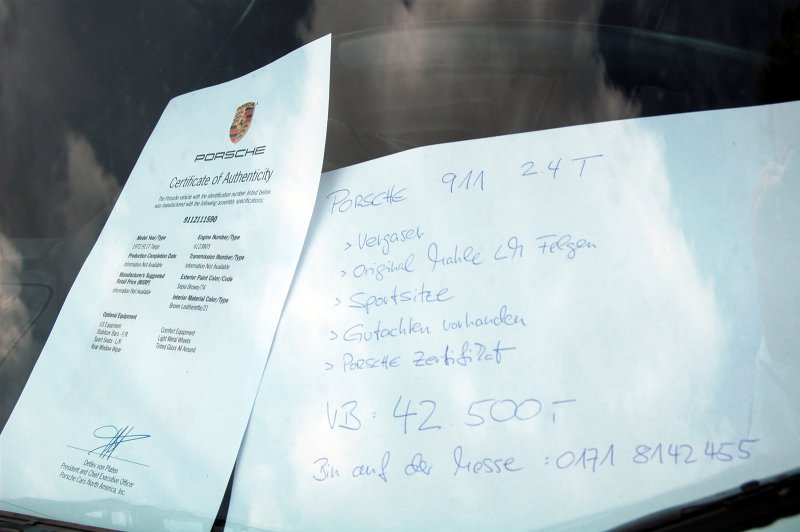 PORSCHE
Certificate of Authenticity
The Porsche vehicle with the identification number listed below
was manufactured with the following assembly specifications.
9112111590
Model Year/Type
1972 911T Targa
Production Completion Date
Information Not Available
Manufacturer's Suggested
Retail Price (MSRP)
Information Not Available
Engine Number/Type
6123805
Transmission Number/Type
Information Not Available
Exterior Paint Color/Code
Sepia Brown/74
Interior Material Color/Type
Brown Leatherette/21
Optional Equipment
US Equipment
Stabilizer Bars - F/R
Sport Seats - L/R
Rear Window Wiper
Comfort Equipment
Light Metal Wheels
Tinted Glass All Around
Detlev von Platen
President and Chief Executive Officer
Porsche Cars North America, Inc.
PORSCHE 911 2.4 T
> Vergaser
> Original Mahle LM Felgen
> Sportsitze
> Gutachten vorhanden
> PORSCHE Zertifikat
VB: 42.500,-
Bin auf der Messe: 0171 8142455